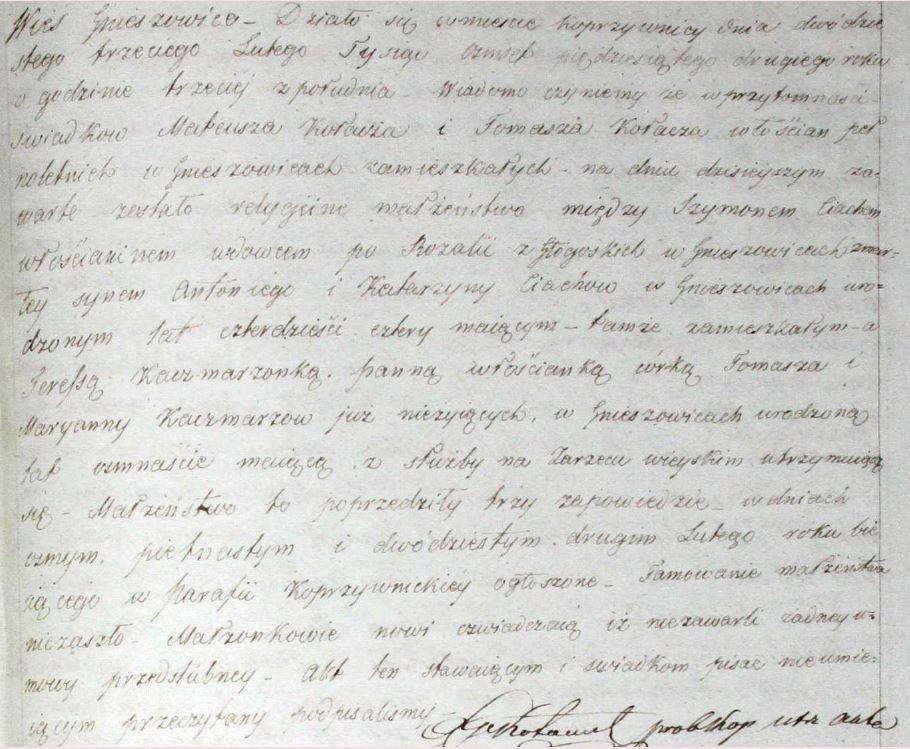 Wieś Gnieszowice – Działo się w mieście Koprzywnicy dnia dwódzie
stego trzeciego Lutego Tysiąc ośmset piędziesiątego drugiego roku
o godzinie trzeciej z południa – Wiadomo czyniemy że w przytomności
swiadkow Mateusza Kołacza i Tomasza Kołacza włościan peł
noletnich w Gnieszowicach zamieszkałych – na dniu dzisieyszym za-
warte zostało religijne małżeństwo między Szymonem Ciachem
włościaninem wdowcem po Rozalii z Głogoskich w Gnieszowicach zmar-
łey synem Antoniego i Katarzyny Ciachow w Gnieszowicach uro-
dzonym lat czterdzieści cztery maiącym – tamże zamieszkałym – a
Teressą Kaczmarzonką panną włościanką córką Tomasza i
Maryanny Kaczmarzow już nieżyiących, w Gnieszowicach urodzoną
lat ośmnaście maiącą z służby na Zarzeciu wieyskim utrzymuiącą
się – Małżeństwo to poprzedziły trzy zapowiedzie – w dniach
ósmym, piętnastym i dwódziestym drugim Lutego roku bie
żącego w Parafii Koprzywnickiey ogłoszone – Tamowanie małżeństwa
niezaszło – Małżonkowie nowi oświadczaią iż niezawarli żadney u-
mowy przedślubney – Akt ten stawaiącym i swiadkom pisać nieumie-
iącym przeczytany podpisaliśmy
probszcz utr akta